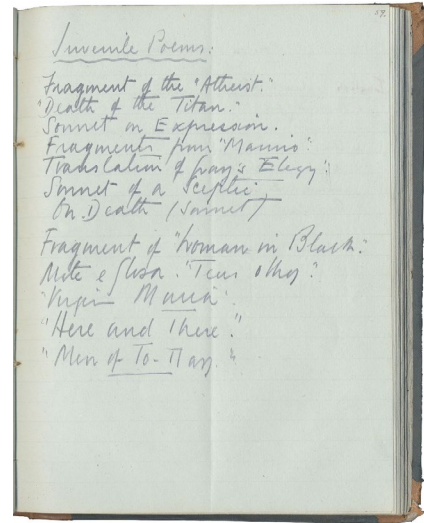 Juvenile Poems:
Fragment of the "Atheist."
"Death of the Titan."
Sonnet on Expression.
Fragments from "Manrio".
Translation of Gray's Elegy":
Sonnet of a Sceptic
On Death (Sonnet)
Fragment of "Woman in Black".
Mote e Glosa. "Teus olhos".
"Virgem Maria".
"Here and There."
"Men of To-Day."